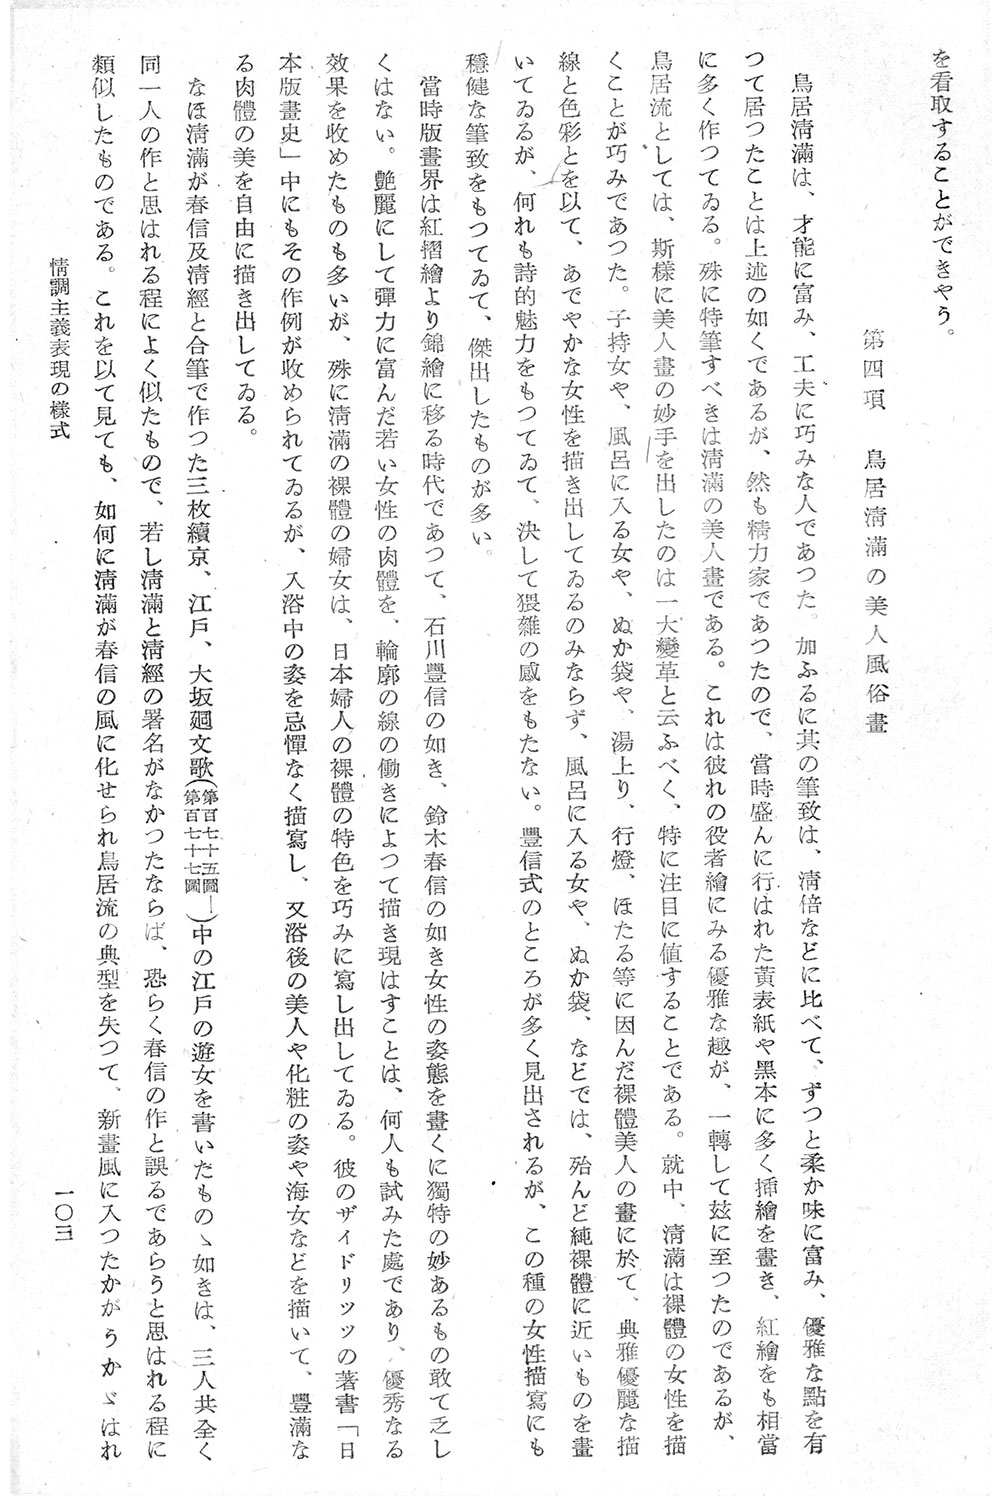 を看取することができやう。
第四項　鳥居淸滿の美人風俗畫
鳥居淸滿は、才能に富み、工夫に巧みな人であつた。加ふるに其の筆致は、淸倍などに比べて、ずつと柔か味に富み、優雅な點を有
つて居つたことは上述の如くであるが、然も精力家であつたので、當時盛んに行はれた黃表紙や黑本に多く挿繪を畫き、紅繪をも相當
に多く作つてゐる。殊に特筆すべきは淸滿の美人畫である。これは彼れの役者繪にみる優雅な趣が、一轉して玆に至つたのであるが、
鳥居流としては、斯樣に美人畫の妙手を出したのは一大變革と云ふべく、特に注目に値することである。就中、淸滿は裸體の女性を描
くことが巧みであつた。子持女や、風呂に入る女や、ぬか袋や、湯上り、行燈、ほたる等に因んだ裸體美人の畫に於て、典雅優麗な描
線と色彩とを以て、あでやかな女性を描き出してゐるのみならず、風呂に入る女や、ぬか袋、などでは、殆んど純裸體に近いものを畫
いてゐるが、何れも詩的魅力をもつてゐて、決して猥雜の感をもたない。豐信式のところが多く見出されるが、この種の女性描寫にも
穩健な筆致をもつてゐて、傑出したものが多い。
當時版畫界は紅摺繪より錦繪に移る時代であつて、石川豐信の如き、鈴木春信の如き女性の姿態を畫くに獨特の妙あるもの敢て乏し
くはない。艶麗にして彈力に富んだ若い女性の肉體を、輪廓の線の働きによつて描き現はすことは、何人も試みた處であり、優秀なる
效果を收めたものも多いが、殊に淸滿の裸體の婦女は、日本婦人の裸體の特色を巧みに寫し出してゐる。彼のザイドリッツの著書「日
本版畫史」中にもその作例が收められてゐるが、入浴中の姿を忌憚なく描寫し、又浴後の美人や化粧の姿や海女などを描いて、豐滿な
る肉體の美を自由に描き出してゐる。
なほ淸滿が春信及淸經と合筆で作つた三枚續京、江戶、大坂廻文歌(第百七十五圖―第百七十七圖)中の江戶の遊女を書いたものゝ如きは、三人共全く
同一人の作と思はれる程によく似たもので、若し淸滿と淸經の署名がなかつたならば、恐らく春信の作と誤るであらうと思はれる程に
類似したものである。これを以て見ても、如何に淸滿が春信の風に化せられ鳥居流の典型を失つて、新畫風に入つたかがうかゞはれ
情調主義表現の樣式
一〇三